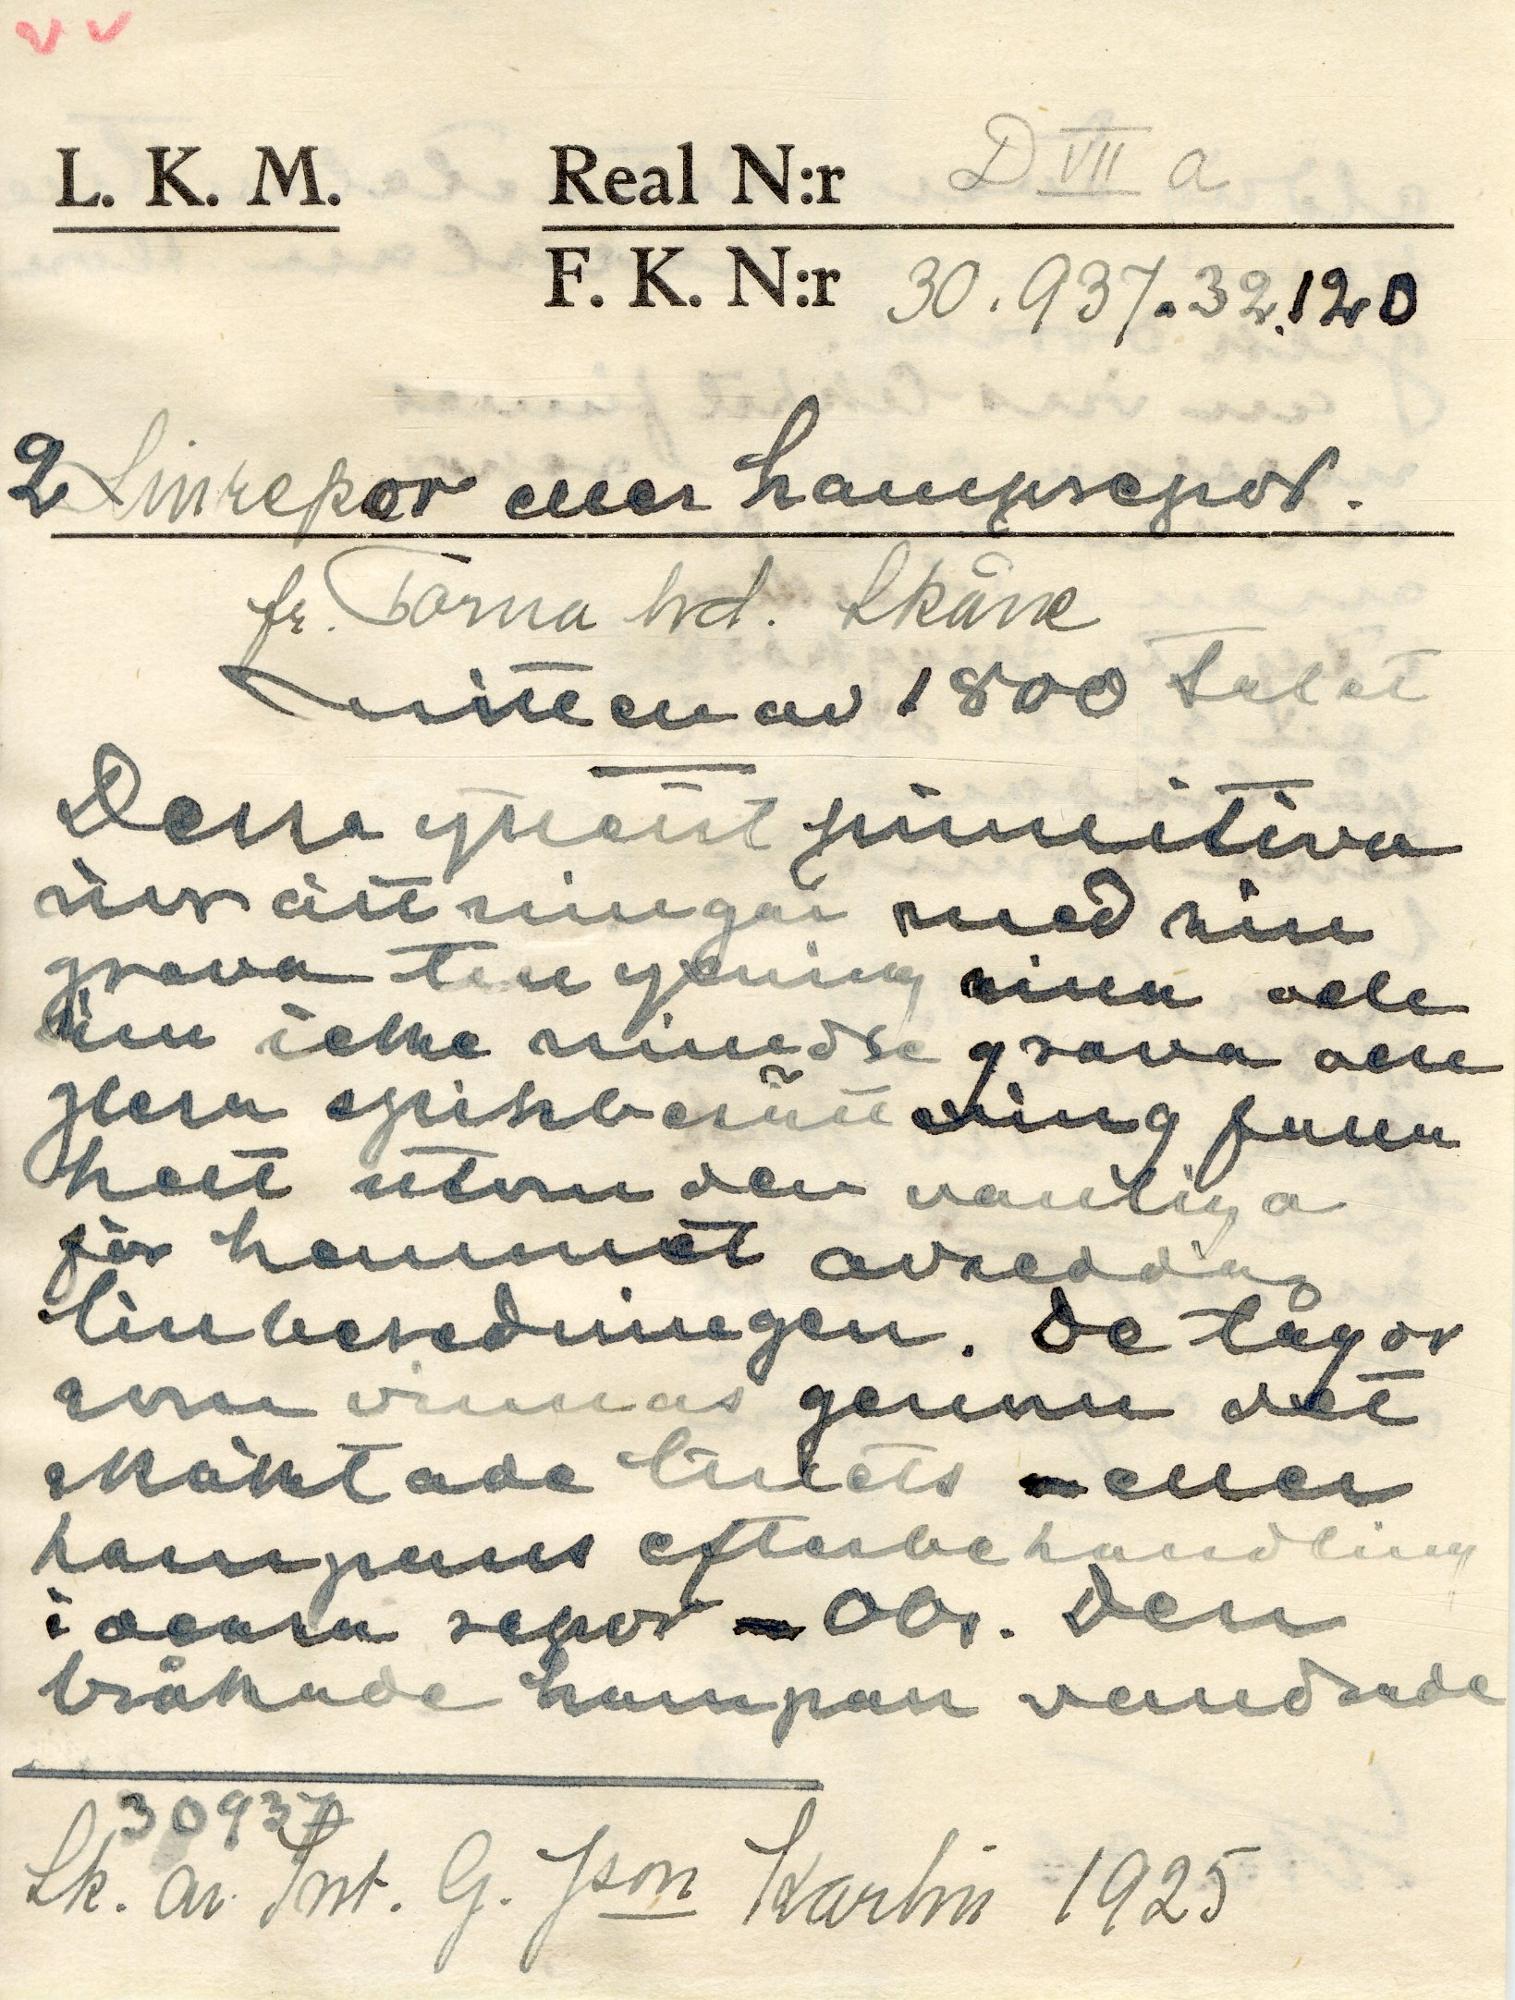 L. K. M. Real N:r D VII a
F. K. N:r 30.937.32.120
2 Linrepor eller hamprepor.
fr. Torna hrd. Skåne
mitten av 1800 talet
Dessa ytterst primitiva
inrättningar med sin
grova sina och
än icke mindre grova och
glesa spikbesättning funna
helt utom den vanliga
för hemmet avsedda
linberedningen. De tågor
som vinnas genom det
skäktade linets - eller
hampans efterbehandling
i dessa repor - Obs. Den
bråkade hampan
30937
Sk. av Int. G. Json Karlin 1925